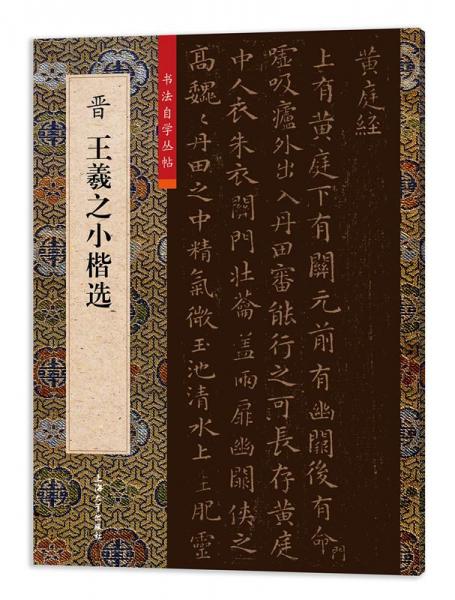 晋 王羲之小楷选
上海大学出版社
书法自学丛帖
黃庭經
上有黃庭下有關元前有幽闕後有命門
噓吸廬外出入丹田審能行之可長存黃庭
中人衣朱衣關門壯蘥蓋兩扉幽闕俠之
高魏〻丹田之中精氣微玉池清水上生肥靈